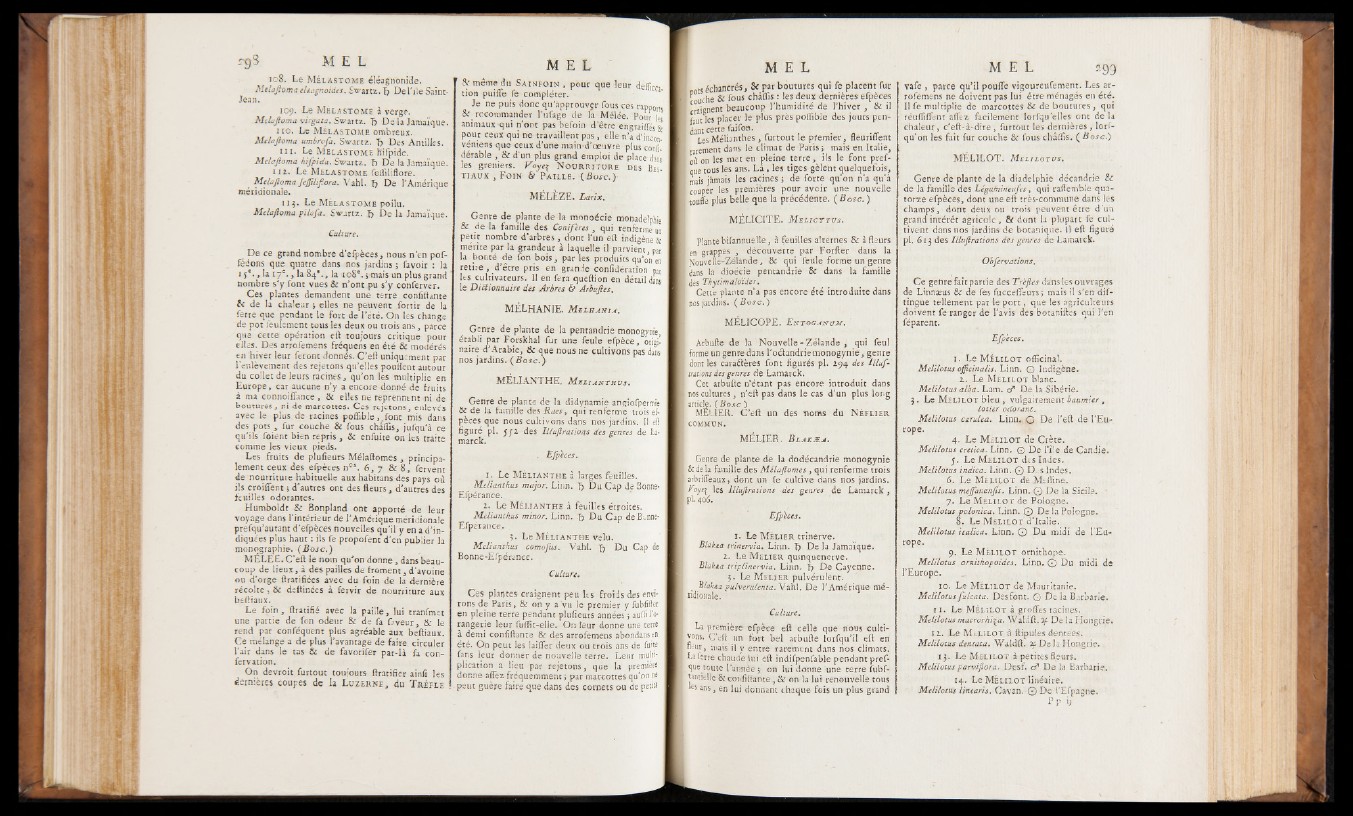 298 MEL
108. Le MÉLASTOME éléagnonide.
Melastoma eleagnoides. Swartz. ♄ De l'île Saint-
Jean.
109. Le MÉLASTOME à verge.
Melastoma virgata. Swartz. ♄ De la Jamaïque.
110. Le MÉLASTOME ombreux.
Melastoma umbrosa. Swartz. ♄ Des Antilles.
111. Le MÉLASTOME hispide.
Melastoma hispida. Swartz. ♄ De la Jamaïque.
112. Le MÉLASTOME sessiliflore.
Melastoma sessiliflora. Vahl. ♄ De l'Amérique
méridionale.
113. Le MÉLASTOME poilu.
Melastoma pilosa. Swartz. ♄ De la Jamaïque.
Culture.
De ce grand nombre d'espèces, nous n'en pos-
sédons que quatre dans nos jardins ; savoir : la
15e., la 17e., la 84e., la 108e. ; mais un plus grand
nombre s'y sont vues & n'ont pu s'y conserver.
Ces plantes demandent une terre consistante
& de la chaleur ; elles ne peuvent sortir de la
serre que pendant le fort de l'été. On les change
de pot seulement tous les deux ou trois ans, parce
que cette opération est toujours critique pour
elles. Des arrosemens fréquens en été & modérés
en hiver leur seront donnés. C'est uniquement par
l'enlèvement des rejetons qu'elles poussent autour
du collet de leurs racines, qu'on les multiplie en
Europe, car aucune n'y a encore donné de fruits
à ma connoissance, & elles ne reprennent ni de
boutures, ni de marcottes. Ces rejetons, enlevés
avec le plus de racines possible, sont mis dans
des pots, sur couche & sous châssis, jusqu'à ce
qu'ils soient bien repris, & ensuite on les traite
comme les vieux pieds.
Les fruits de plusieurs Mélastomes, principa-
lement ceux des espèces nos. 6, 7 & 8, servent
de nourriture habituelle aux habitans des pays où
ils croissent ; d'autres ont des fleurs, d'autres des
feuilles odorantes.
Humboldt & Bonpland ont apporté de leur
voyage dans l'intérieur de l'Amérique méridionale
presqu'autant d'espèces nouvelles qu'il y en a d'in-
diquées plus haut : ils se proposent d'en publier la
monographie. (Bosc.)
MÊLÉE. C'est le nom qu'on donne, dans beau-
coup de lieux, à des pailles de froment, d'avoine
ou d'orge stratifiées avec du foin de la dernière
récolte, & destinées à servir de nourriture aux
bestiaux.
Le foin, stratifié avec la paille, lui transmet
une partie de son odeur & de sa saveur, & le
rend par conséquent plus agréable aux bestiaux.
Ce mélange a de plus l'avantage de faire circuler
l'air dans le tas & de favoriser par-là sa con-
servation.
On devroit surtout toujours stratifier ainsi les
dernières coupes de la LUZERNE, du TRÈFLE
MEL
& même du SAINFOIN, pour que leur dessicca-
tion puisse se compléter.
Je ne puis donc qu'approuver sous ces rapports
& recommander l'usage de la Mêlée. Pour les
animaux qui n'ont pas besoin d'être engraissés &
pour ceux qui ne travaillent pas, elle n'a d'incon-
véniens que ceux d'une main-d'œuvre plus consi-
dérable, & d'un plus grand emploi de place dans
les greniers. Voyez NOURRITURE DES BES-
TIAUX, FOIN & PAILLE. (Bosc.)
MÉLÈZE. Larix.
Genre de plante de la monoécie monadelphie
& de la famille des Conifères, qui renferme un
petit nombre d'arbres, dont l'un est indigène &
mérite par la grandeur à laquelle il parvient, par
la bonté de son bois, par les produits qu'on en
retire, d'être pris en grande considération par
les cultivateurs. Il en sera question en détail dans
le Dictionnaire des Arbres & Arbustes.
MÉLHANIE. MELHANIA.
Genre de plante de la pentandrie monogynie,
établi par Forskhal sur une seule espèce, origi-
naire d'Arabie, & que nous ne cultivons pas dans
nos jardins. (Bosc.)
MÉLIANTHE. MELIANTHUS.
Genre de plante de la didynamie angiospermie
& de la famille des Rues, qui renferme trois es-
pèces que nous cultivons dans nos jardins. Il est
figuré pl. 552 des Illustrations des genres de La-
marck.
Espèces.
1. Le MÉLIANTHE à larges feuilles.
Melianthus major. Linn. ♄ Du Cap de Bonne-
Espérance.
2. Le MÉLIANTHE à feuilles étroites.
Melianthus minor. Linn. ♄ Du Cap de Bonne-
Espérance.
3. Le MÉLIANTHE velu.
Melianthus comosus. Vahl. ♄ Du Cap de
Bonne-Espérance.
Culture.
Ces plantes craignent peu les froids des envi-
rons de Paris, & on y a vu le premier y subsister
en pleine terre pendant plusieurs années ; aussi l'o-
rangerie leur suffit-elle. On leur donne une terre
à demi consistante & des arrosemens abondans en
été. On peut les laisser deux ou trois ans de suite
sans leur donner de nouvelle terre. Leur multi-
plication a lieu par rejetons, que la première
donne assez fréquemment ; par marcottes qu'on ne
peut guère faire que dans des cornets ou de petits
MEL
pots échancrés, & par boutures qui se placent sur
couche & sous châssis : les deux dernières espèces
craignent beaucoup l'humidité de l'hiver, & il
faut les placer le plus près possible des jours pen-
dant cette saison.
Les Mélianthes, surtout le premier, fleurissent
rarement dans le climat de Paris ; mais en Italie,
où on les met en pleine terre, ils le font pres-
que tous les ans. Là, les tiges gèlent quelquefois,
mais jamais les racines ; de sorte qu'on n'a qu'à
couper les premières pour avoir une nouvelle
touffe plus belle que la précédente. (Bosc.)
MÉLICITE. MELICYTUS.
Plante bisannuelle, à feuilles alternes & à fleurs
en grappes, découverte par Forster dans la
Nouvelle-Zélande, & qui seule forme un genre
dans la dioécie pentandrie & dans la famille
des Thytimaloïdes.
Cette plante n'a pas encore été introduite dans
nos jardins. (Bosc.)
MÉLICOPE. ENTOGANUM.
Arbuste de la Nouvelle-Zélande, qui seul
forme un genre dans l'octandrie monogynie, genre
dont les caractères sont figurés pl. 294 des Illus-
trations des genres de Lamarck.
Cet arbuste n'étant pas encore introduit dans
nos cultures, n'est pas dans le cas d'un plus long
article. (Bosc)
MÊLIER. C'est un des noms du NÉFLIER
COMMUN.
MÊLIER. BLAKEA.
Genre de plante de la dodécandrie monogynie
& de la famille des Mélastomes, qui renferme trois
arbrisseaux, dont un se cultive dans nos jardins.
Voyez les Illustrations des genres de Lamarck,
pl. 406.
Espèces.
1. Le MÊLIER trinerve.
Blakea trinervia. Linn. ♄ De la Jamaïque.
2. Le MÊLIER quinquenerve.
Blakea triplinervia. Linn. ♄ De Cayenne.
3. Le MÊLIER pulvérulent.
Blakea pulverulenta. Vahl. De l'Amérique mé-
ridionale.
Culture.
La première espèce est celle que nous culti-
vons. C'est un fort bel arbuste lorsqu'il est en
fleur, mais il y entre rarement dans nos climats.
La serre chaude lui est indispensable pendant pres-
que toute l'année ; on lui donne une terre subs-
tantielle & consistante, & on la lui renouvelle tous
les ans, en lui donnant chaque fois un plus grand
MEL 299
vase, parce qu'il pousse vigoureusement. Les ar-
rosemens ne doivent pas lui être ménagés en été.
Il se multiplie de marcottes & de boutures, qui
réussissent assez facilement lorsqu'elles ont de la
chaleur, c'est-à-dire, surtout les dernières, lors-
qu'on les fait sur couche & sous châssis. (Bosc.)
MÉLILOT. MELILOTUS.
Genre de plante de la diadelphie décandrie &
de la famille des Légumineuses, qui rassemble qua-
torze espèces, dont une est très-commune dans les
champs, dont deux ou trois peuvent être d'un
grand intérêt agricole, & dont la plupart se cul-
tivent dans nos jardins de botanique. Il est figuré
pl. 613 des Illustrations des genres de Lamarck.
Observations.
Ce genre fait partie des Trèfles dans les ouvrages
de Linnæus & de ses successeurs ; mais il s'en dis-
tingue tellement par le port, que les agriculteurs
doivent se ranger de l'avis des botanistes qui l'en
séparent.
Espèces.
1. Le MÉLILOT officinal.
Melilotus officinalis. Linn. ☉ Indigène.
2. Le MÉLILOT blanc.
Melilotus alba. Lam. ♂ De la Sibérie.
3. Le MÉLILOT bleu, vulgairement baumier,
lotier odorant.
Melilotus cærulea. Linn. ☉ De l'est de l'Eu-
rope.
4. Le MÉLILOT de Crète.
Melilotus cretica. Linn. ☉ De l'île de Candie.
5. Le MÉLILOT des Indes.
Melilotus indica. Linn. ☉ Des Indes.
6. Le MÉLILOT de Messine.
Melilotus messanensis. Linn. ☉ De la Sicile.
7. Le MÉLILOT de Pologne.
Melilotus polonica. Linn. ☉ De la Pologne.
8. Le MÉLILOT d'Italie.
Melilotus italica. Linn. ☉ Du midi de l'Eu-
rope.
9. Le MÉLILOT ornithope.
Melilotus ornithopoides. Linn. ☉ Du midi de
l'Europe.
10. Le MÉLILOT de Mauritanie.
Melilotus sulcata. Desfont. ☉ De la Barbarie.
11. Le MÉLILOT à grosses racines.
Melilotus macrorhiza. Waldst. ♃ De la Hongrie.
12. Le MÉLILOT à stipules dentées.
Melilotus dentata. Waldst. ♃ De la Hongrie.
13. Le MÉLILOT à petites fleurs.
Melilotus parviflora. Desf. ♂ De la Barbarie.
14. Le MÉLILOT linéaire.
Melilotus linearis. Cavan. ☉ De l'Espagne.
Pp ij